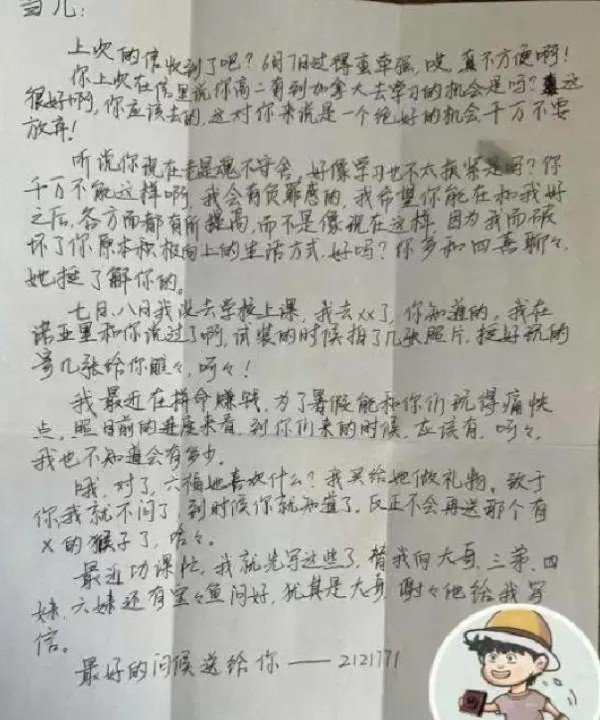 当儿:
上次的信收到了吧?6月7日过得蛮牵强,哎,真不方便啊!
你上次在信里说你高二有到加拿大去学习的机会是吗?这
很好啊,你应该去的,这对你来说是一个绝好的机会千万不要
放弃!
听说你现在老是魂不守舍,好像学习也不太抓紧是吗?你
千万不能这样啊,我会有负罪感的,我希望你能在和我好
之后,各方面都有所提高,而不是像现在这样,因为我而破
坏了你原本积极向上的生活方式,好吗?你多和四喜聊々,
她挺了解你的。
七日、八日我没去学校上课,我去xx了,你知道的,我在
诺亚里和你说过了啊,试装的时候拍了几张照片,挺好玩的
寄几张给你瞧々,呵々!
我最近在拼命赚钱,为了暑假能和你们玩得痛快
点,照目前的进度来看,到你们来的时候,应该有,呵々,
我也不知道会有多少。
哦,对了,六福她喜欢什么?我买给她做礼物。致于
你我就不问了,到时候你就知道了,反正不会再送那个有
X的猴子了,哈々。
最近功课忙,我就先写这些了,替我向大哥、三弟、四
妹、六妹还有黑々鱼问好,犹其是大哥,谢々他给我写
信。
最好的问候送给你——2121771